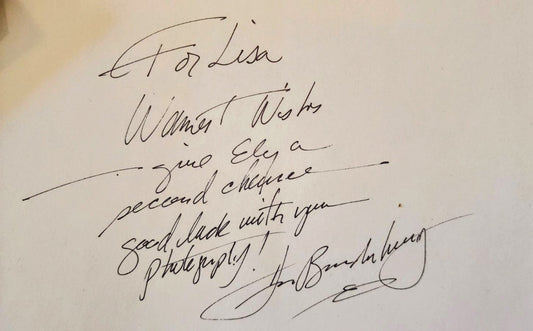 For Lisa
Warmest Wishes
give Ely a
second chance
good luck with your
photography!
Jim Brandenburg